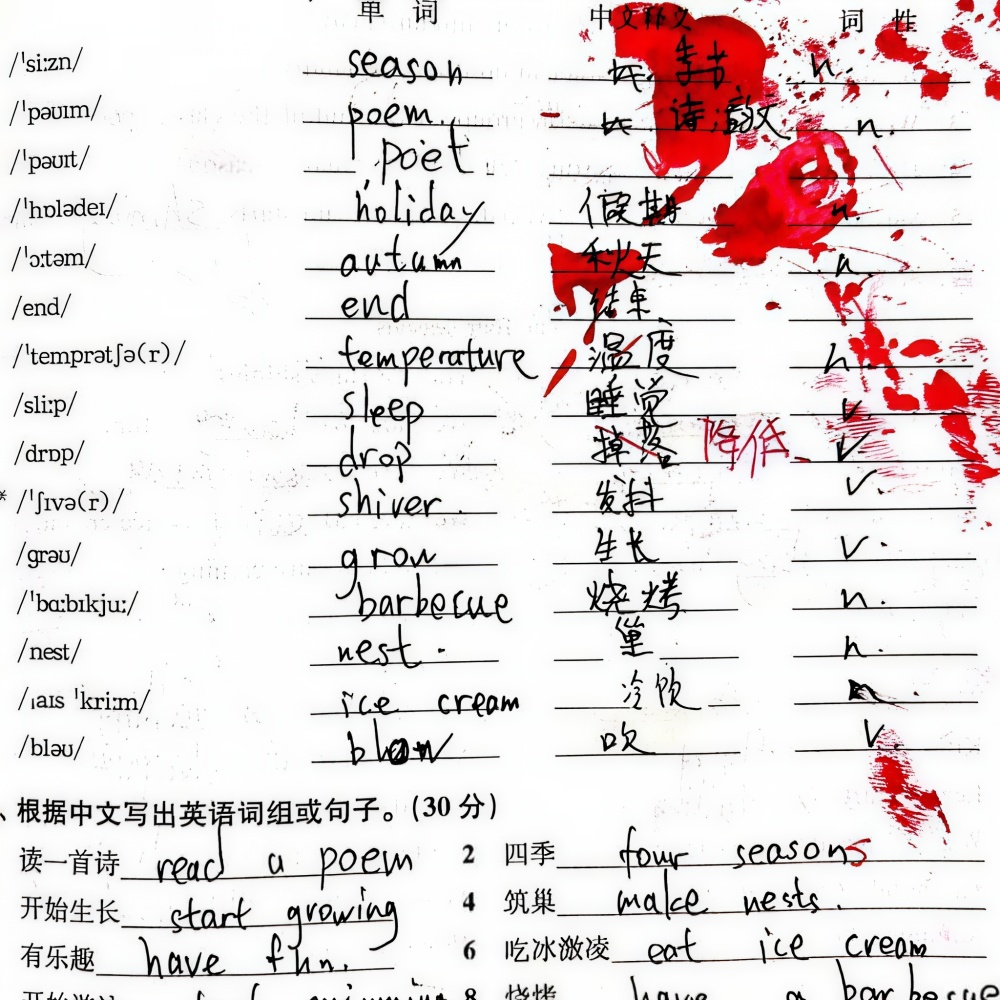 单 词 中文释义 词 性
/ˈsiːzn/ season 季节 n.
/ˈpəʊɪm/ poem 诗 n.
/ˈpəʊɪt/ poet
/ˈhɒlədeɪ/ holiday 假期 n.
/ˈɔːtəm/ autumn 秋天 n.
/end/ end 结束
/ˈtemprətʃə(r)/ temperature 温度 n.
/sliːp/ sleep 睡觉 v.
/drɒp/ drop 掉落 降低 v
* /ˈʃɪvə(r)/ shiver 发抖 v.
/ɡrəʊ/ grow 生长 v.
/ˈbɑːbɪkjuː/ barbecue 烧烤 n.
/nest/ nest. 巢 n.
/ˌaɪs ˈkriːm/ ice cream 冷饮 n.
/bləʊ/ blow 吹 v.
、根据中文写出英语词组或句子。(30 分)
读一首诗 read a poem 2 四季 four seasons
开始生长 start growing 4 筑巢 make nests.
有乐趣 have fun. 6 吃冰激凌 eat ice cream
8 烧烤 have a barbecue